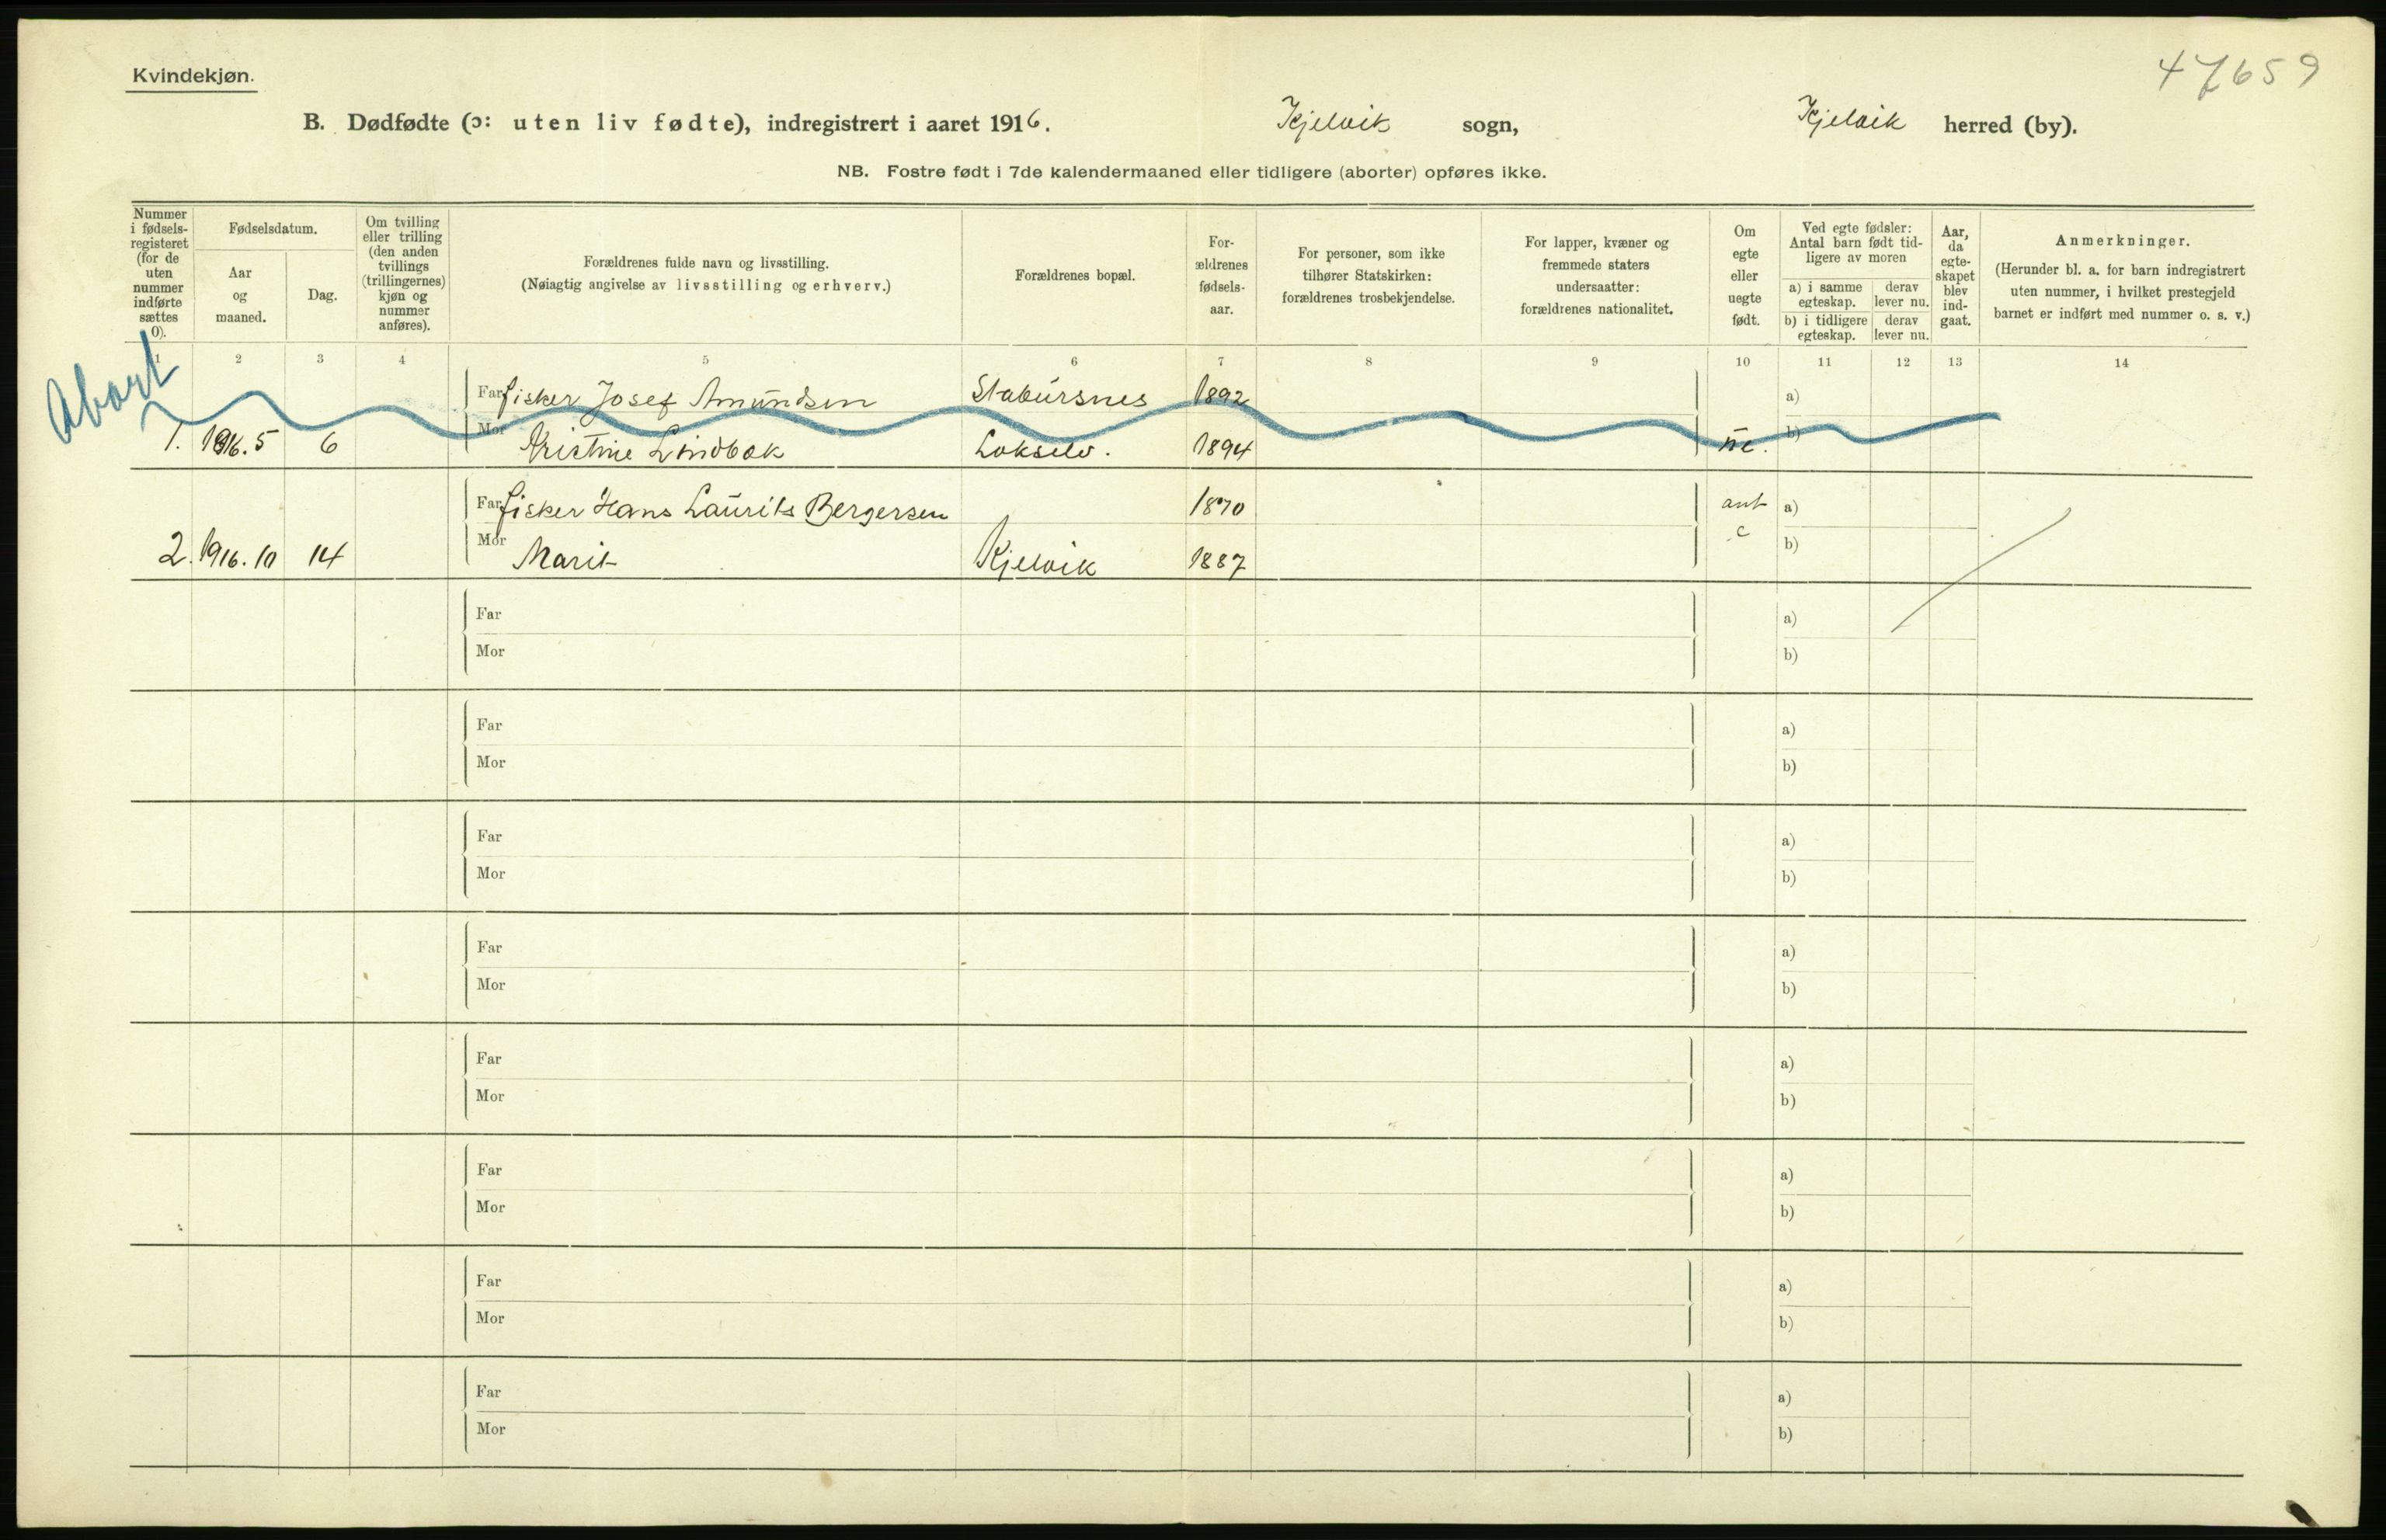 47659
Kvindekjøn.
B. Dødfødte (ɔ: uten liv fødte), indregistrert i aaret 1916. Kjelvik sogn, Kjelvik herred (by).
NB. Fostre født i 7de kalendermaaned eller tidligere (aborter) opføres ikke.
Nummer
i fødsels-
registeret
(for de
uten
nummer
indførte
sættes
0).
Fødselsdatum.
Aar
og
maaned.
Dag.
Om tvilling
eller trilling
(den anden
tvillings
(trillingernes)
kjøn og
nummer
anføres).
Forældrenes fulde navn og livsstilling.
(Nøiagtig angivelse av livsstilling og erhverv.)
Forældrenes bopæl.
For-
ældrenes
fødsels-
aar.
For personer, som ikke
tilhører Statskirken:
forældrenes trosbekjendelse.
For lapper, kvæner og
fremmede staters
undersaatter:
forældrenes nationalitet.
Om
egte
eller
uegte
født.
Ved egte fødsler:
Antal barn født tid-
ligere av moren
a) i samme
egteskap.
derav
lever nu.
b) i tidligere
egteskap.
derav
lever nu.
Aar,
da
egte-
skapet
blev
ind-
gaat.
Anmerkninger.
(Herunder bl. a. for barn indregistrert
uten nummer, i hvilket prestegjeld
barnet er indført med nummer o. s. v.)
1 2 3 4 5 6 7 8 9 10 11 12 13 14
Abort
Far fisker Josef Amundsen Stabursnes 1892 a)
1. 1916. 5 6 Mor Kristine Lindbak Lakselv. 1894 ue. b)
Far fisker Hans Laurits Bergersen 1870 a)
2. 1916. 10 14 Mor Marit Kjelvik 1887 b)
Far a)
Mor b)
Far a)
Mor b)
Far a)
Mor b)
Far a)
Mor b)
Far a)
Mor b)
Far a)
Mor b)
Far a)
Mor b)
Far a)
Mor b)